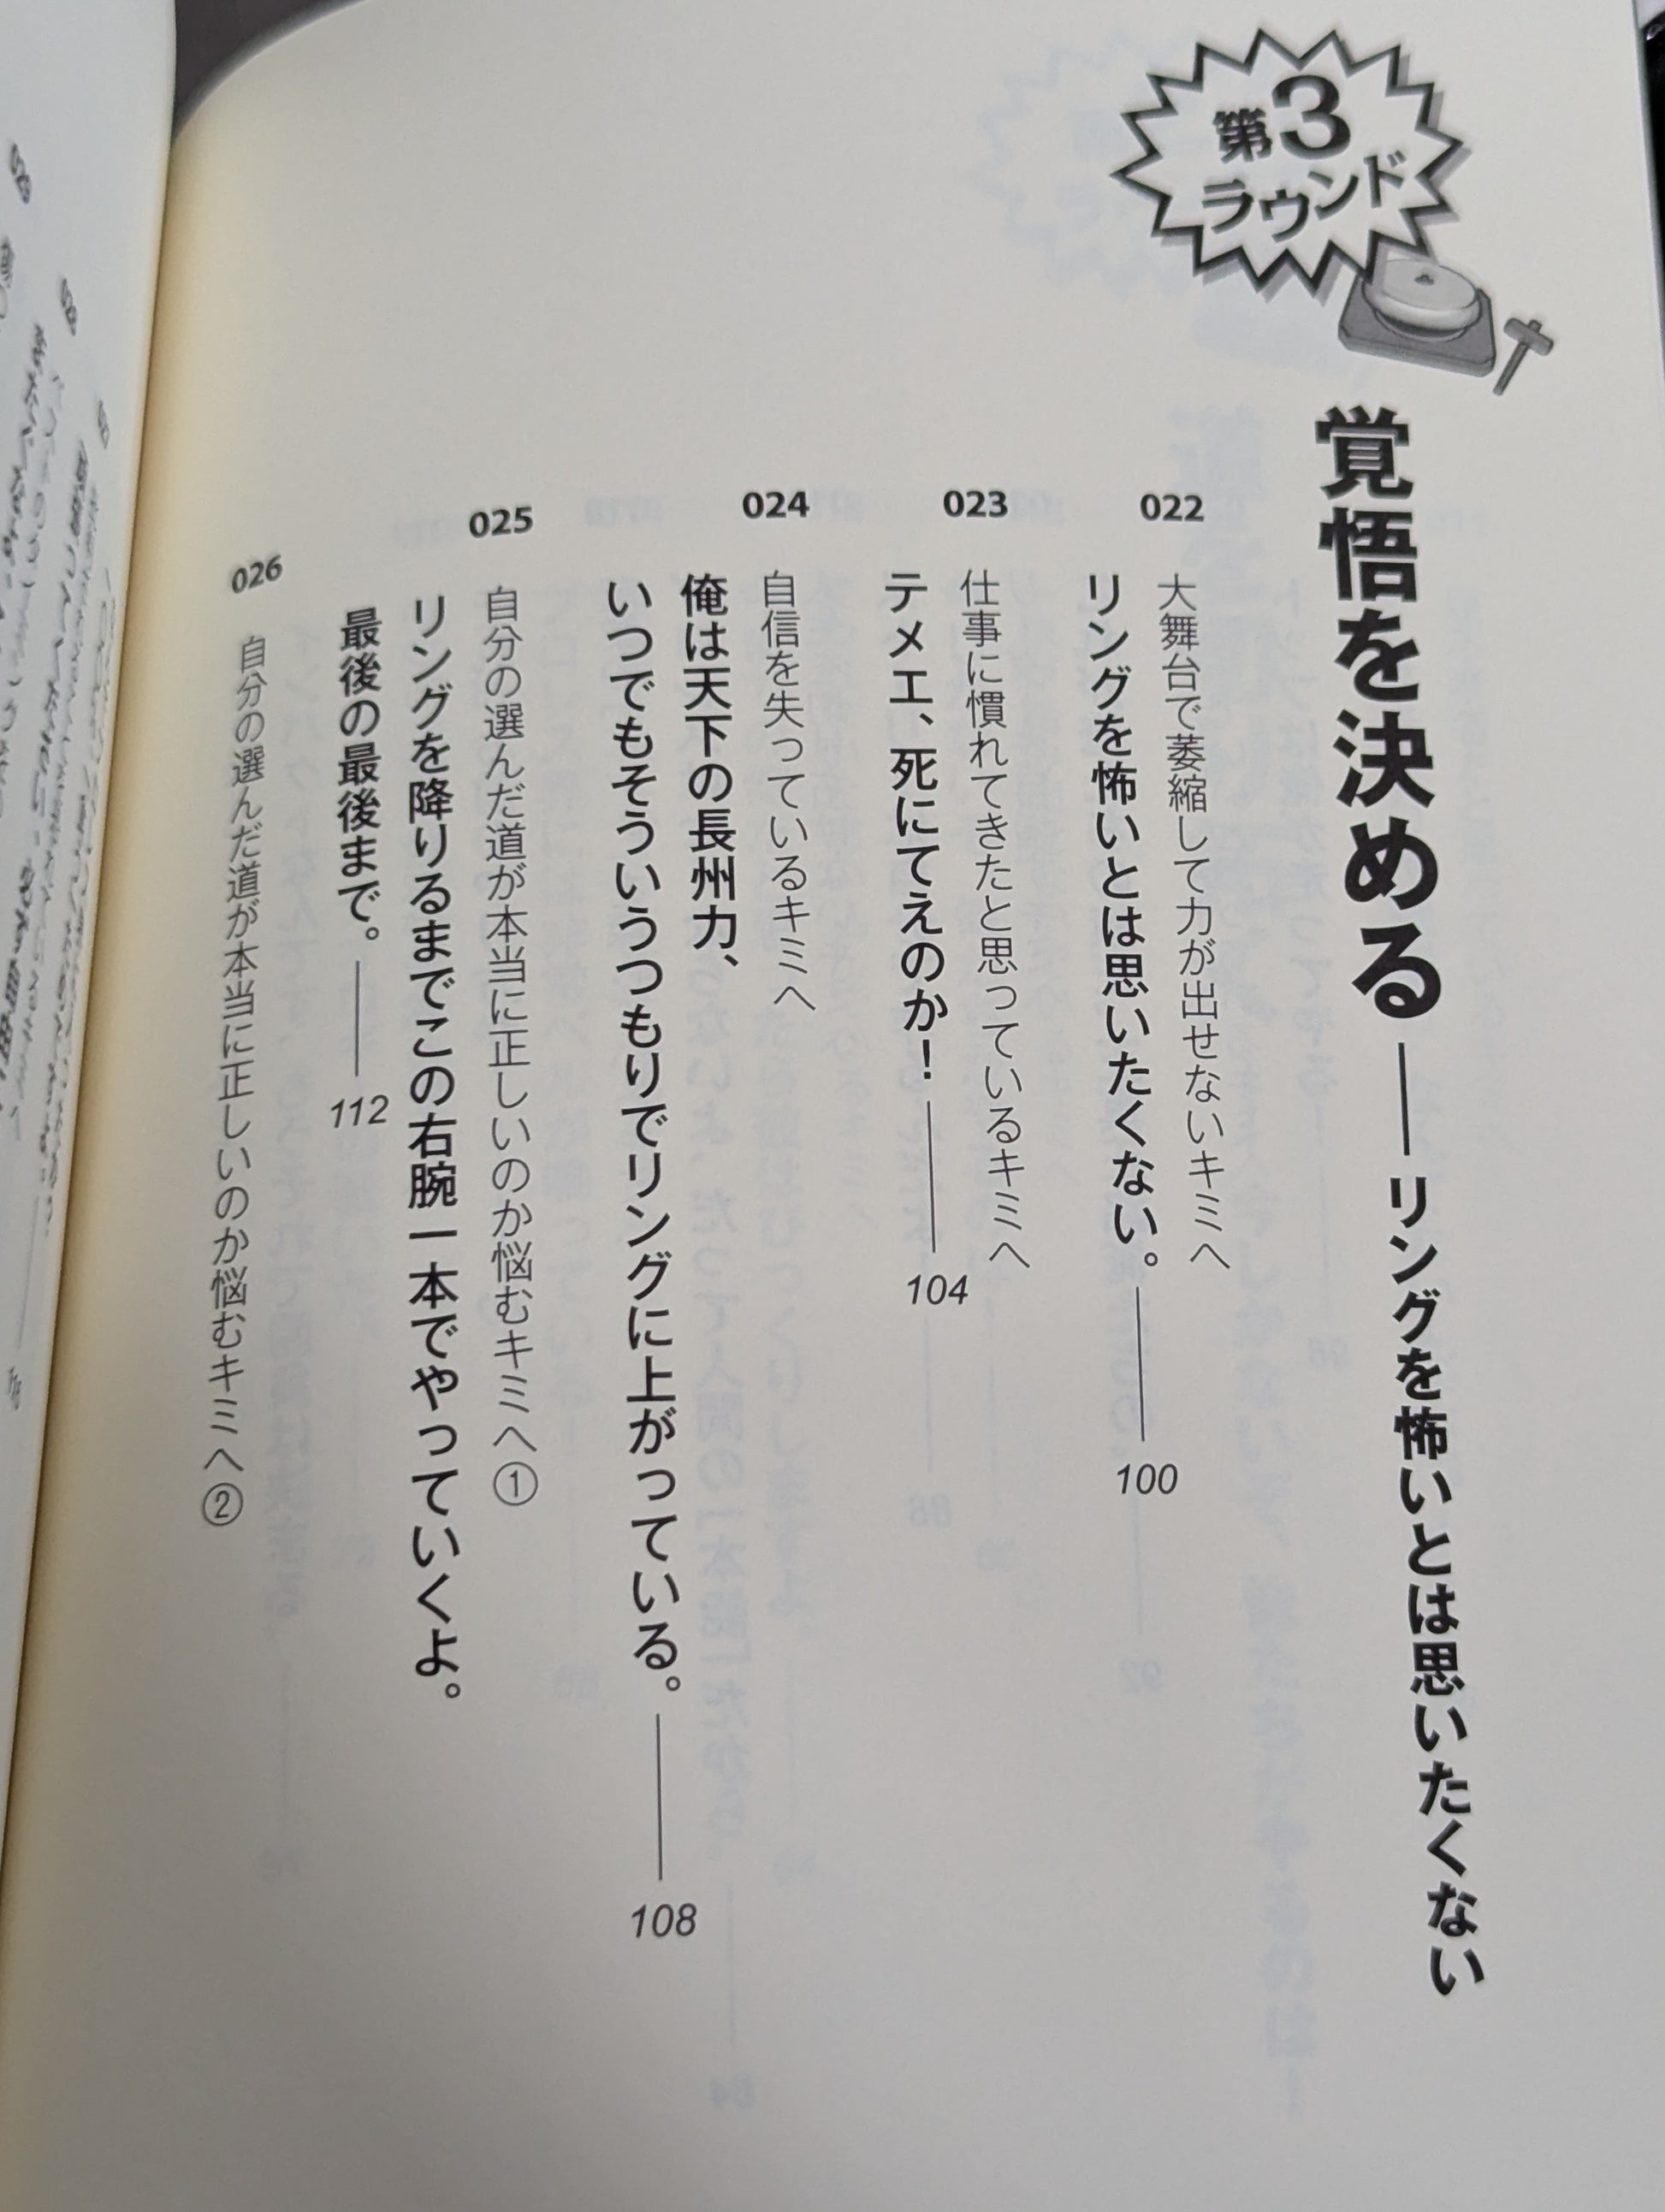 第3
ラウンド
覚悟を決める——リングを怖いとは思いたくない
022
大舞台で萎縮して力が出せないキミへ
リングを怖いとは思いたくない。——100
023
仕事に慣れてきたと思っているキミへ
テメエ、死にてえのか！——104
024
自信を失っているキミへ
俺は天下の長州力、
いつでもそういうつもりでリングに上がっている。——108
025
自分の選んだ道が本当に正しいのか悩むキミへ①
リングを降りるまでこの右腕一本でやっていくよ。
最後の最後まで。——112
026
自分の選んだ道が本当に正しいのか悩むキミへ②